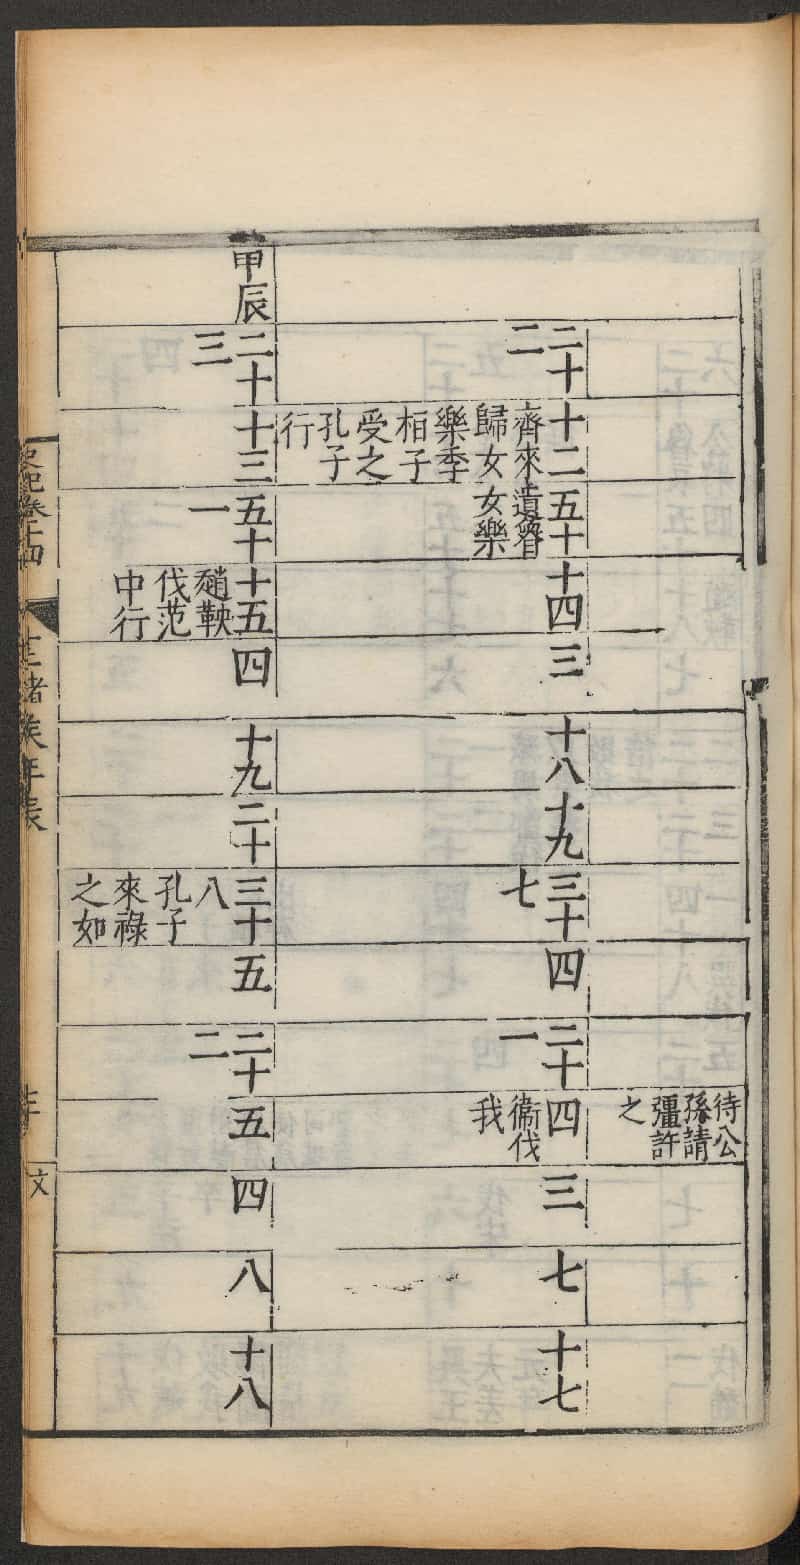 待公
孫請
彊許
之
二十
二
十二
齊來遺魯
歸女女樂
樂季
桓子
受之
孔子
行
五十
十四
三
十八
十九
三十
七
四
二十
一
四
衞伐
我
三
七
十七
甲辰
二十
三
十三
五十
一
十五
趙鞅
伐范
中行
四
十九
二十
三十
八
孔子
來祿
之如
五
二十
二
五
四
八
十八
史記卷十四
諸侯年表
文